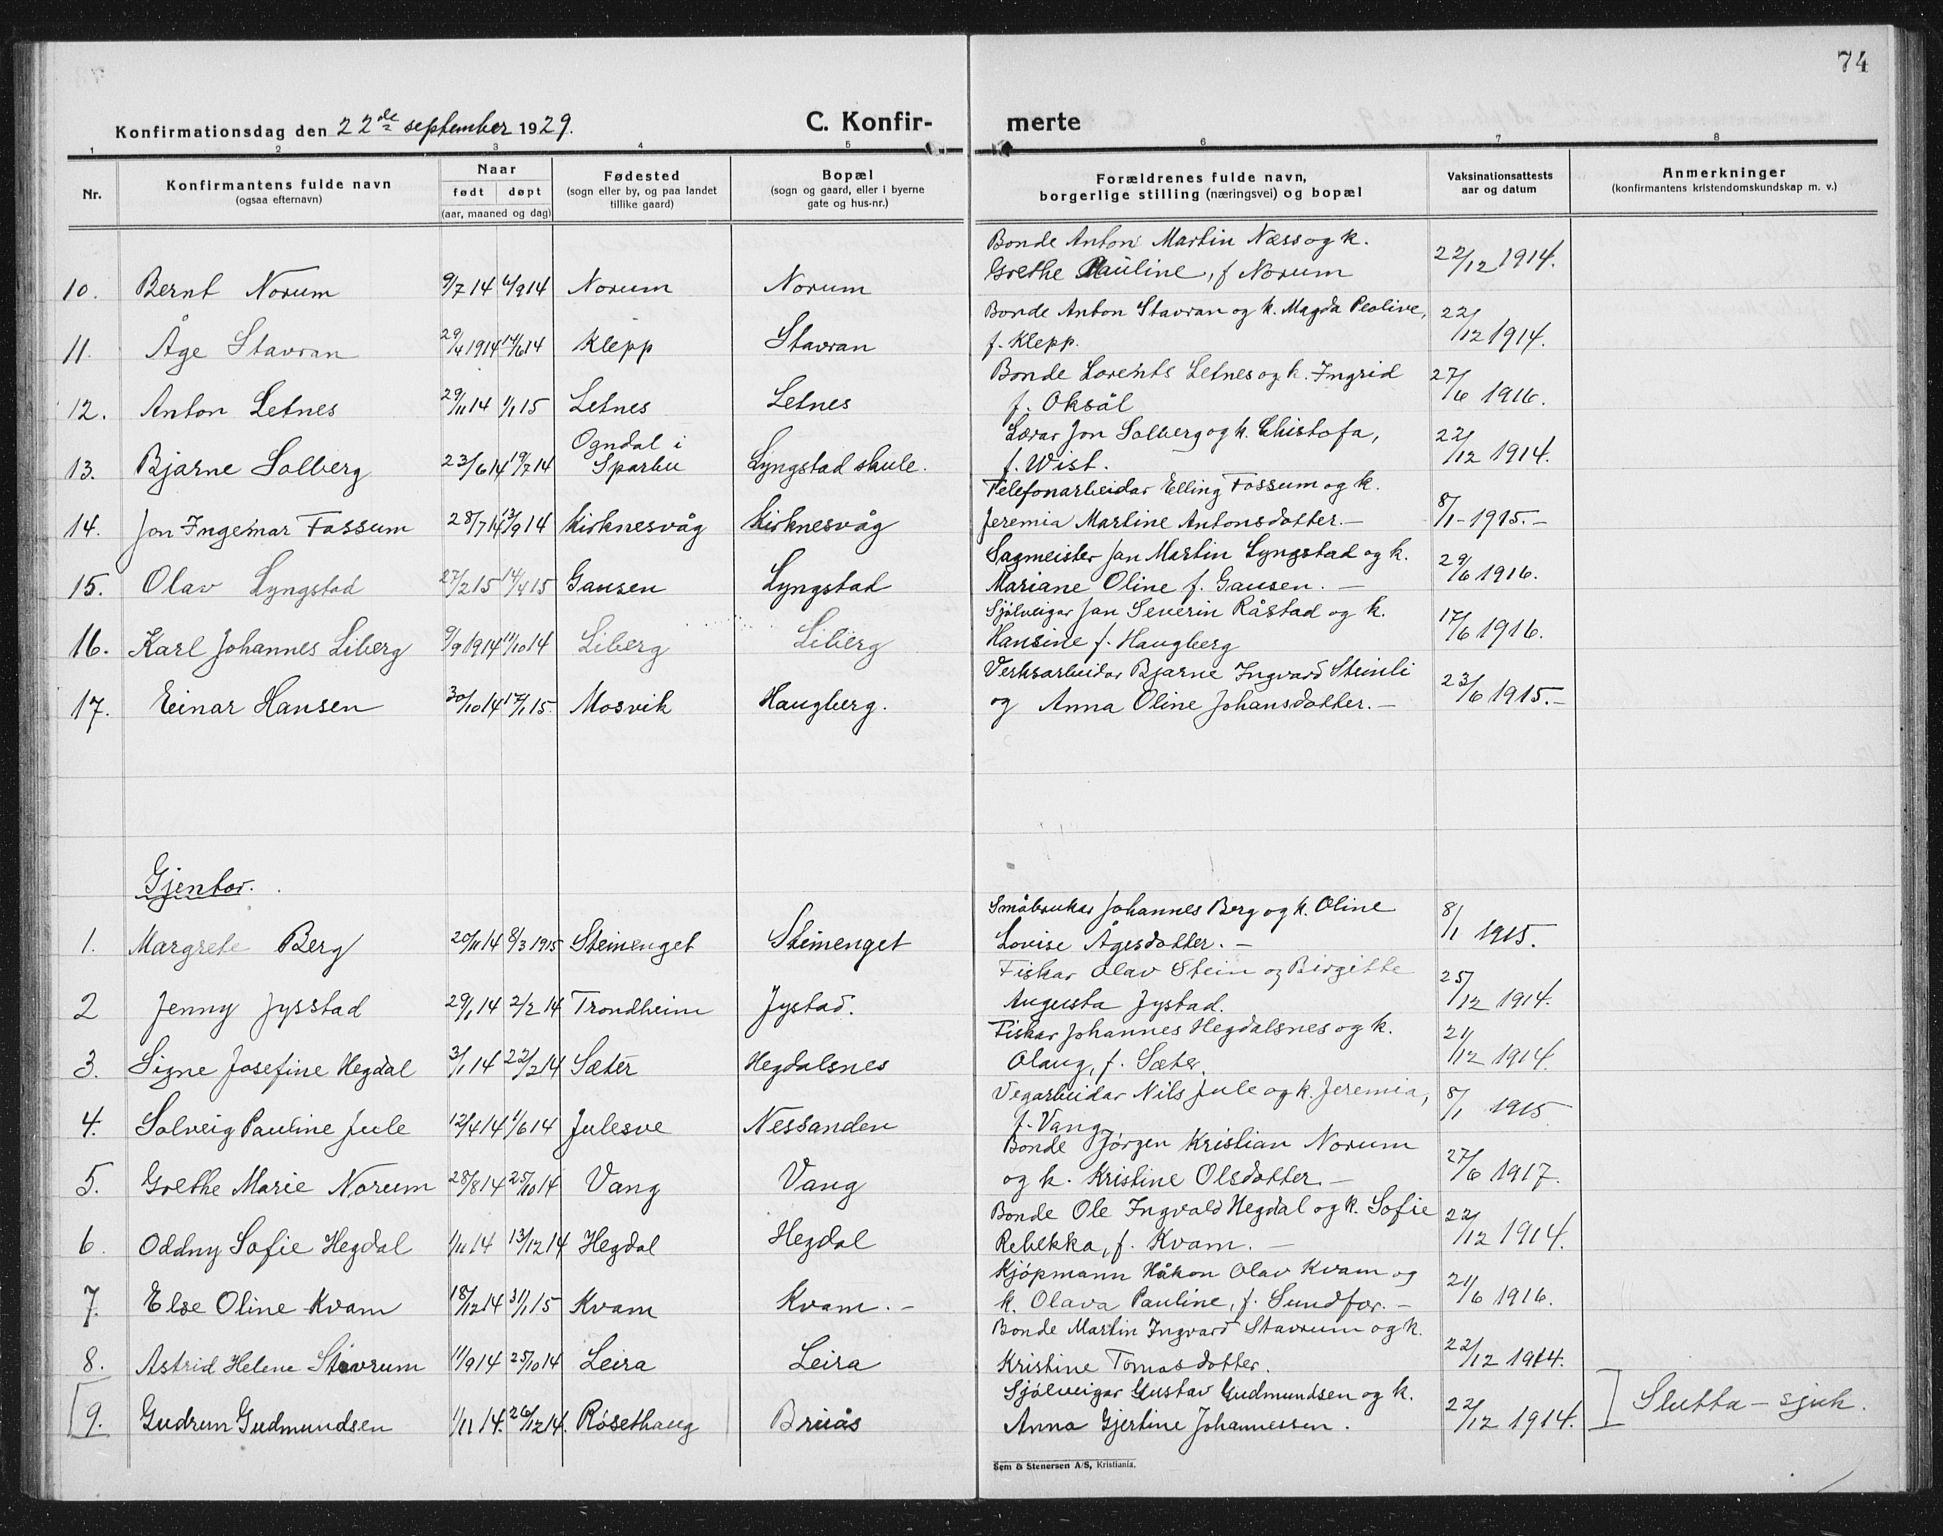 74
Konfirmationsdag den 22de september 1929. C. Konfirmerte
1 2 3 4 5 6 7 8
Nr. Konfirmantens fulde navn (ogsaa efternavn) Naar født døpt (aar, maaned og dag) Fødested (sogn eller by, og paa landet tillike gaard) Bopæl (sogn og gaard, eller i byerne gate og hus-nr.) Forældrenes fulde navn, borgerlige stilling (næringsvei) og bopæl Vaksinationsattests aar og datum Anmerkninger (konfirmantens kristendomskundskap m. v.)
10. Bernt Norum 9/7 14 6/9 14 Norum Norum Bonde Anton Martin Næss og k. Grethe Pauline, f Norum 22/12 1914.
11. Åge Stavran 29/4 1914 14/6 14 Klepp Stavran Bonde Anton Stavran og k. Magda Peolive, f. Klepp. 22/12 1914.
12. Anton Letnes 29/11 14 1/1 15 Letnes Letnes Bonde Lorents Letnes og k. Ingrid f. Oksål 27/6 1916.
13. Bjarne Solberg 23/6 14 19/7 14 Ogndal i Sparbu Lyngstad skule. Lærar Jon Solberg og k. Christofa, f. Wist. 22/12 1914.
14. Jon Ingemar Fossum 28/7 14 13/9 14 Kirknesvåg Kirknesvåg Telefonarbeidar Elling Fossum og k. Jeremia Martine Antonsdotter. — 8/1 - 1915. —
15. Olav Lyngstad 27/2 15 14/4 15 Gausen Lyngstad Sagmeister Jan Martin Lyngstad og k. Mariane Oline f. Gausen. — 29/6 1916.
16. Karl Johannes Liberg 9/9 1914 11/10 14 Liberg Liberg Sjølveigar Jan Severin Råstad og k. Hansine f. Haugberg 17/6 1916.
17. Einar Hansen 30/10 14 17/1 15. Mosvik Haugberg. Verksarbeidar Bjarne Ingvard Steinli og Anna Oline Johansdotter. — 23/6 1915. —
Gjentor.
1. Margrete Berg 20/11 14 8/3 1915 Steinenget Steinenget Småbrukar Johannes Berg og k. Oline Lovise Ågesdotter. — 8/1 1915.
2 Jenny Jysstad 29/1 14 2/2 14 Trondheim Jystad. Fiskar Olav Stein og Birgitte Augusta Jystad. 25/12 1914.
3. Signe Josefine Hegdal 3/1 14 22/2 14 Sæter Hegdalsnes Fiskar Johannes Hegdalsnes og k. Olaug, f. Sæter. 21/12 1914.
4. Solveig Pauline Jule 12/4 14 1/6 14 Julesve Nessanden Vegarbeidar Nils Jule og k. Jeremia, f. Vang 8/1 1915
5. Grethe Marie Norum 28/8 14 25/10 14 Vang Vang Bonde Jørgen Kristian Norum og k. Kristine Olsdotter. — 27/6 1917.
6. Oddny Sofie Hegdal 1/11 14 13/12 14 Hegdal Hegdal Bonde Ole Ingvald Hegdal og k. Sofie Rebekka, f. Kvam. — 22/12 1914.
7. Else Oline Kvam 18/12 14 31/1 15 Kvam Kvam. — Kjøpmann Håkon Olav Kvam og k. Olava Pauline, f. Sundfær. — 21/6 1916.
8. Astrid Helene Stavrum 11/9 14 25/10 14 Leira Leira Bonde Martin Ingvard Stavrum og k. Kristine Tomasdotter. 22/12 1914.
[9. Gudrun Gudmundsen 1/11 14. 26/12 14. Røsethaug Bruås Sjølveigar Gustav Gudmundsen og k. Anna Gjertine Johannessen. 22/12 1914.] Slutta — sjuk.
Sem & Stenersen A/S, Kristiania.